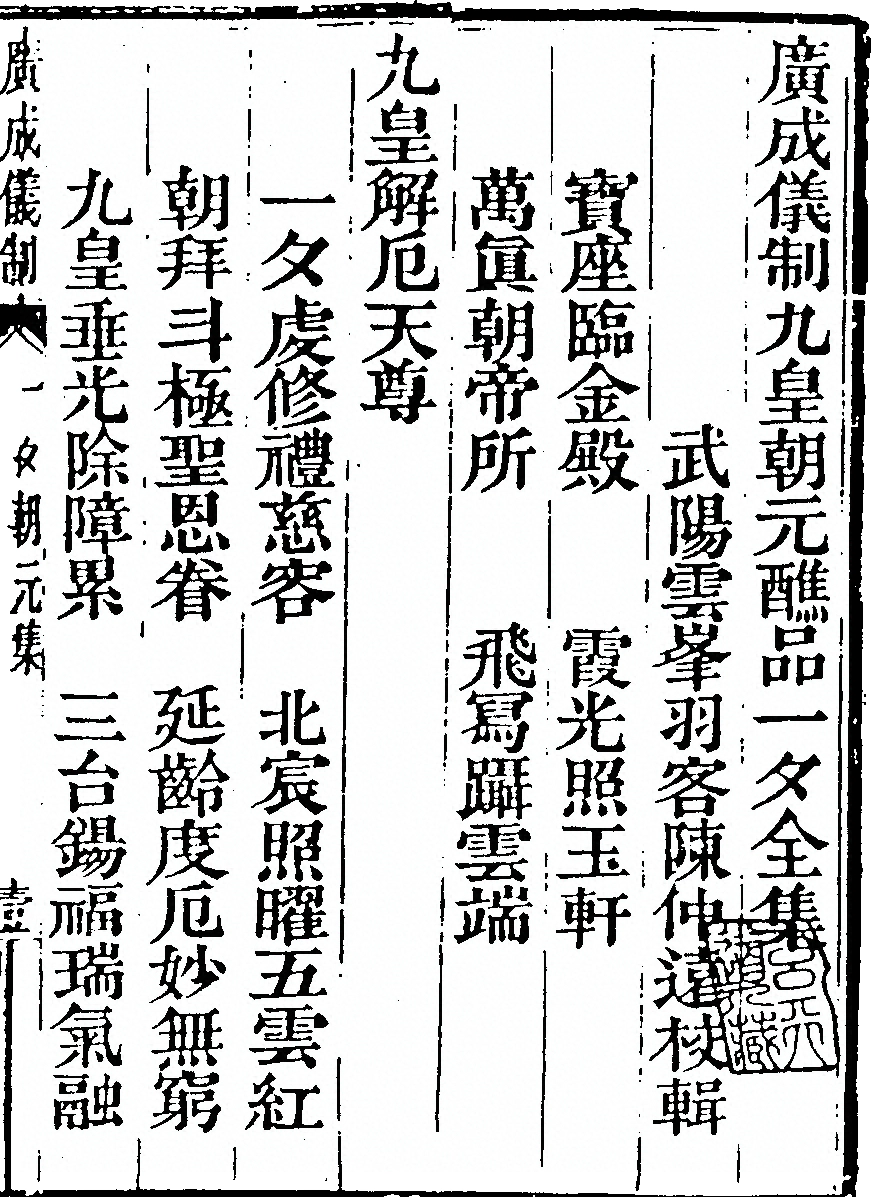 廣成儀制九皇朝元醮品一夕全集
武陽雲峯羽客陳仲遠校輯
寶座臨金殿　霞光照玉軒
萬眞朝帝所　飛舄躡雲端
九皇解厄天尊
一夕虔修禮慈容　北宸照曜五雲紅
朝拜斗極聖恩眷　延齡度厄妙無窮
九皇垂光除障累　三台錫福瑞氣融
廣成儀制　一夕朝元集　壹